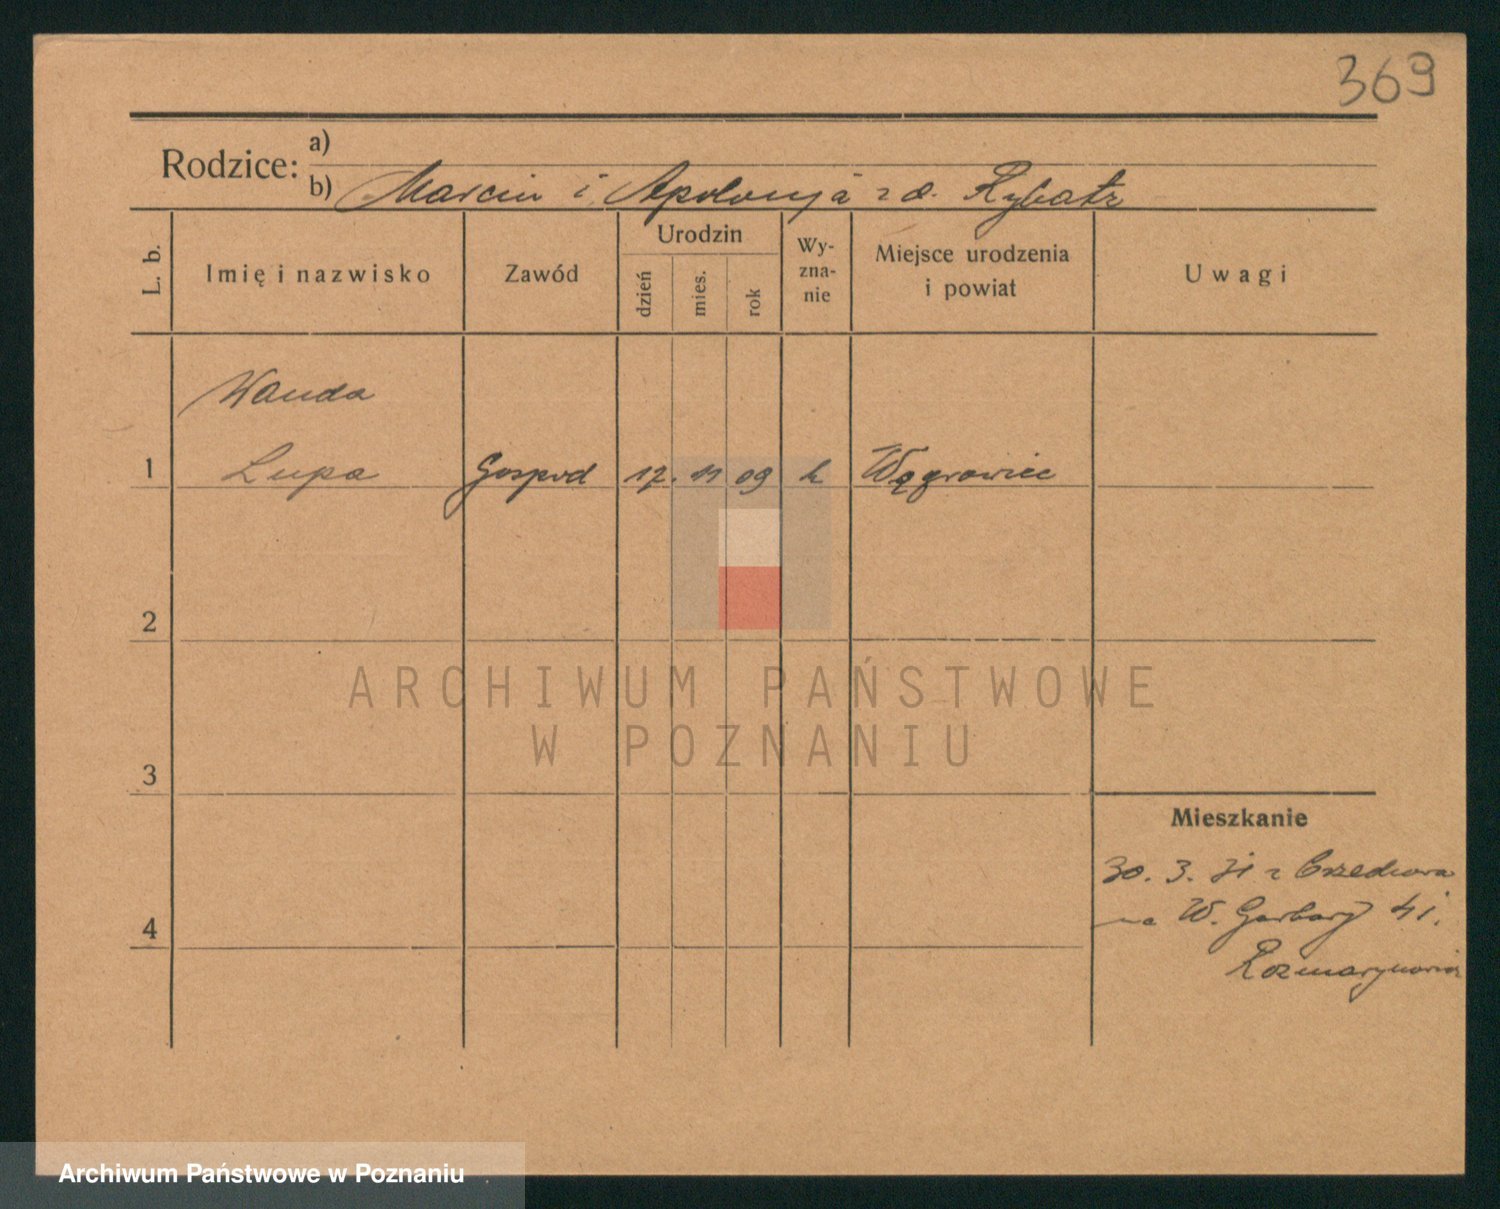 369
Rodzice: a)
b) Marcin i Apolonja z d. Rybark
L. b.
Imię i nazwisko
Zawód
Urodzin
dzień
mies.
rok
Wy-
zna-
nie
Miejsce urodzenia
i powiat
Uwagi
Wanda
1 Lupa Gospod 17. 11 09 k Wągrowiec
2
3
4
Mieszkanie
30. 3. 31 z
na W. Garbary 41.
ARCHIWUM PAŃSTWOWE
W POZNANIU
Archiwum Państwowe w Poznaniu